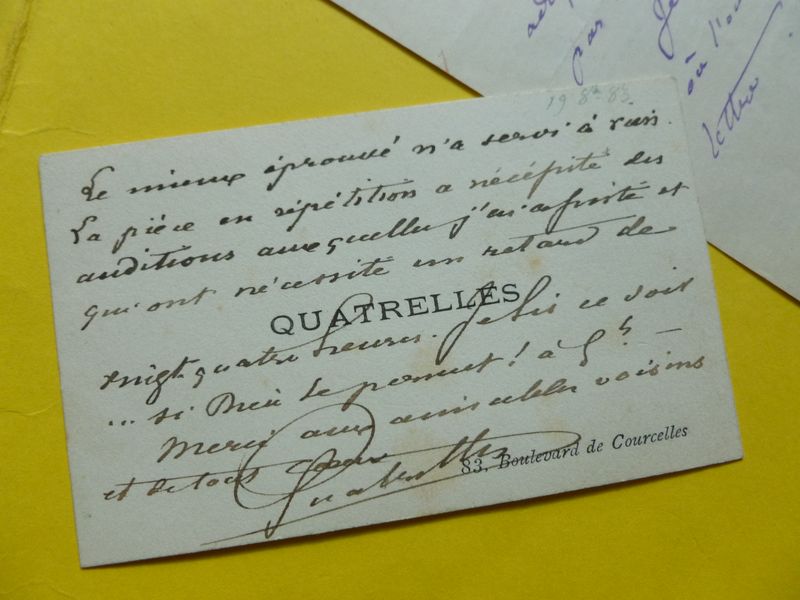 19 8bre 83.
Le mieux éprouvé n'a servi à rien.
La pièce en répétition a nécéssité des
auditions auxquelles j'ai assisté et
qui ont nécessité un retard de
QUATRELLES
vingt-quatre heures. Je lis ce soir
... si Dieu le permet! à 9h —
Merci aux aimables voisins
et de tout cœur
Quatrelles
83, Boulevard de Courcelles
par
Je
où l'on
lettre